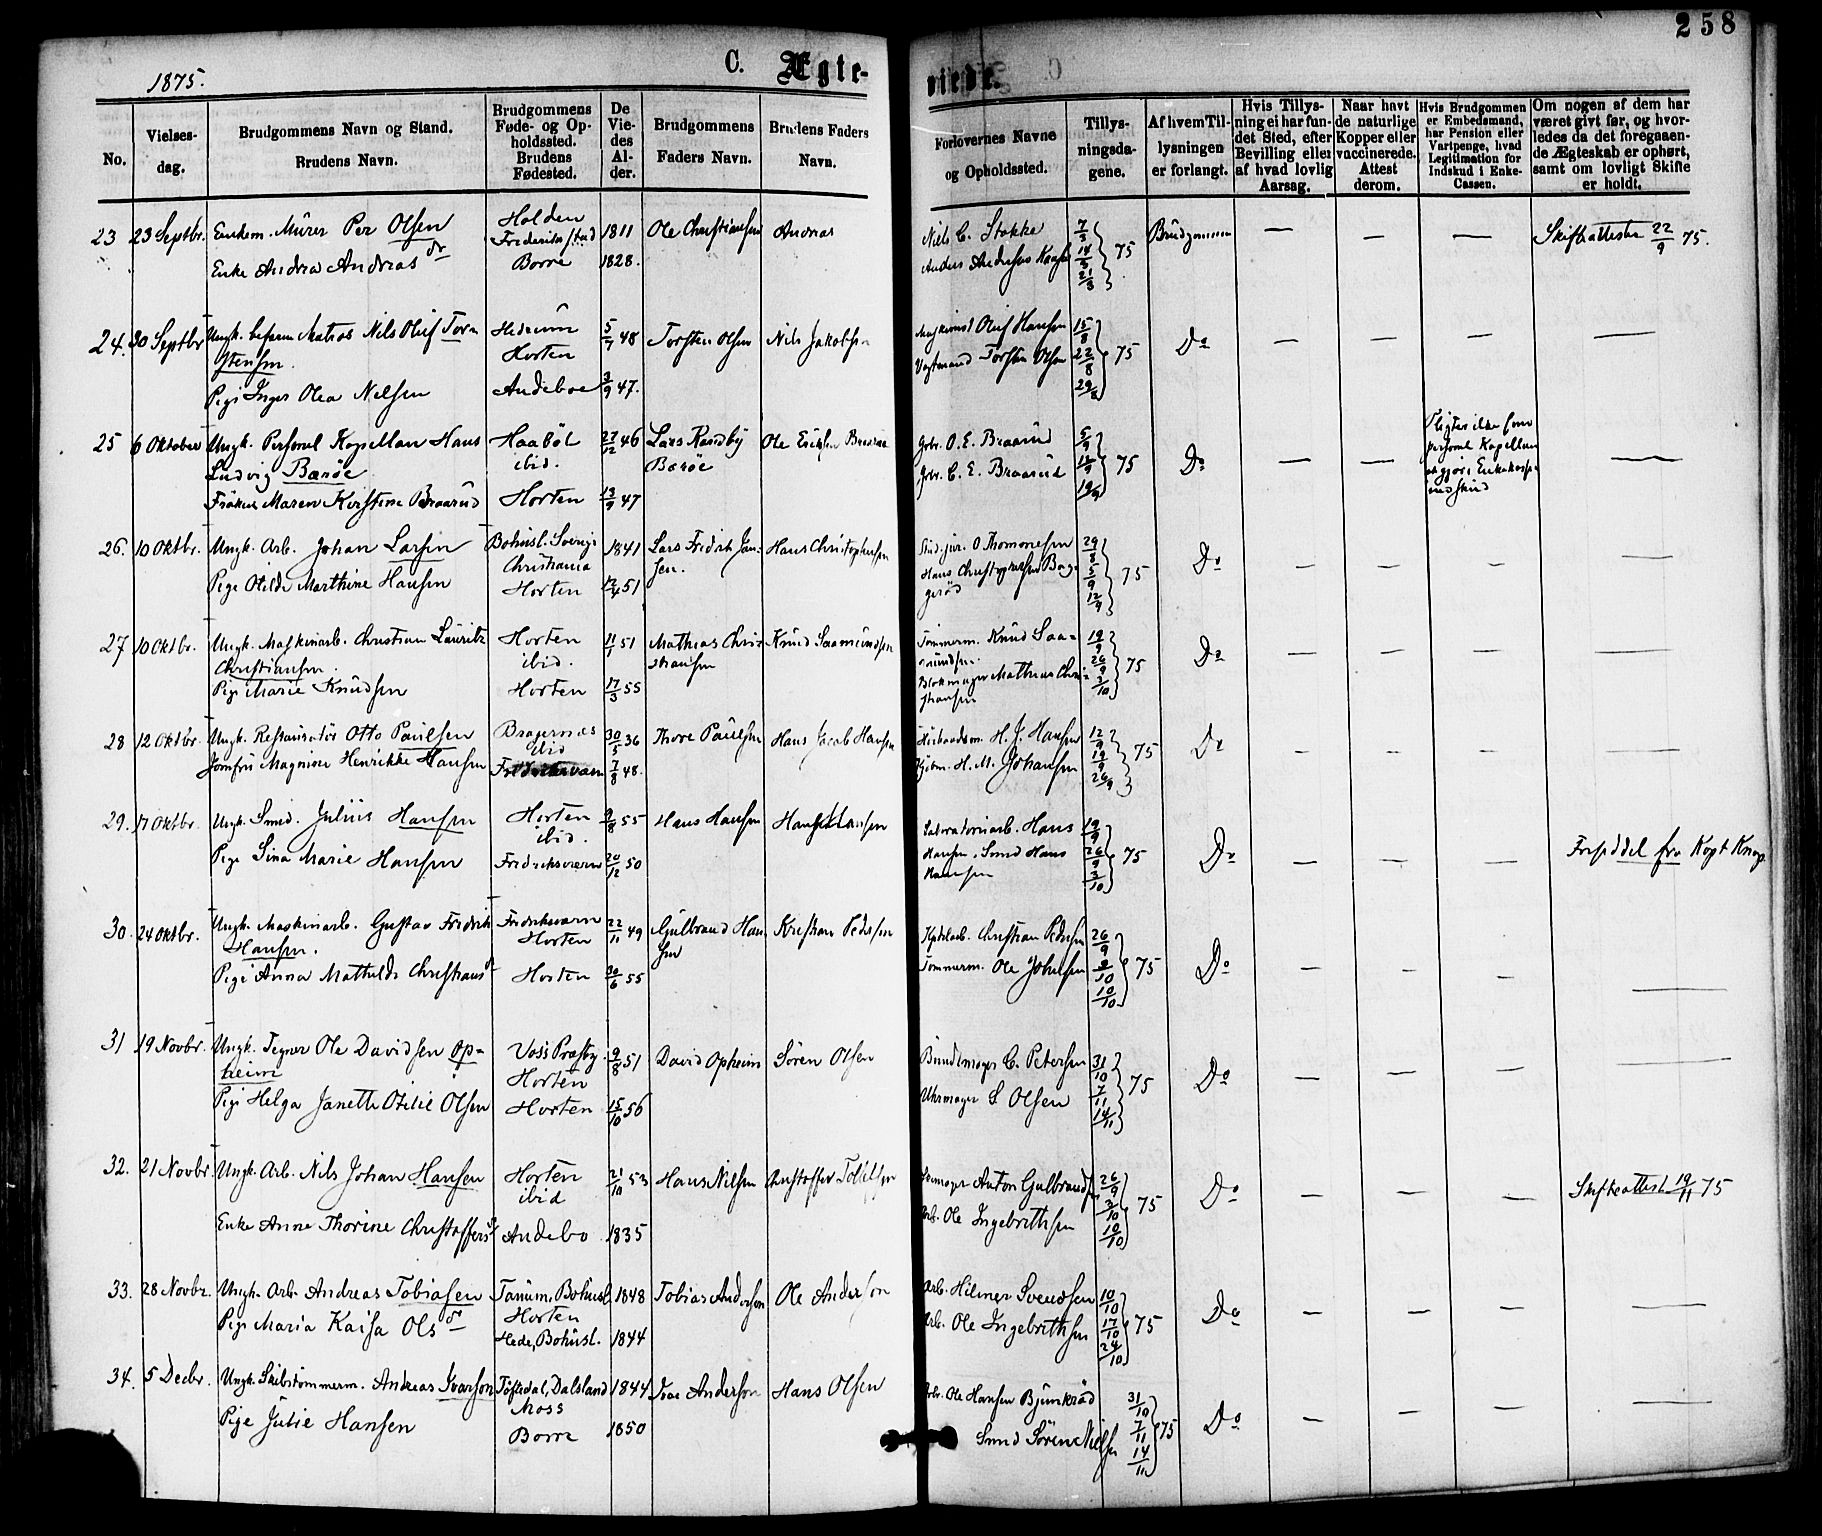 258
1875.
C. Ægte-
viede.
No.
Vielses-
dag.
Brudgommens Navn og Stand.
Brudens Navn.
Brudgommens
Føde- og Op-
holdssted.
Brudens
Fødested.
De
Vie-
des
Al-
der.
Brudgommens
Faders Navn.
Brudens Faders
Navn.
Forlovernes Navne
og Opholdssted.
Tillys-
ningsda-
gene.
Af hvem Til-
lysningen
er forlangt.
Hvis Tillys-
ning ei har fun-
det Sted, efter
Bevilling eller
af hvad lovlig
Aarsag.
Naar havt
de naturlige
Kopper eller
vaccinerede.
Attest
derom.
Hvis Brudgommen
er Embedsmand,
har Pension eller
Vartpenge, hvad
Legitimation for
Indskud i Enke-
Cassen.
Om nogen af dem har
været givt før, og hvor-
ledes da det foregaaen-
de Ægteskab er ophørt,
samt om lovligt Skifte
er holdt.
23 23 Septbr. Enkem. Murer Per Olsen
Enke Andrea Andreasdr
Holden
Fredrikstad
Borre
1811
1828.
Ole Christiansen
Andreas
Niels C. Stokke
Anders Andersen
7/3 14/3 21/3 75
Brudgommen
— — —
Skifteattester 22/9 75.
24. 30 Septbr Ungk. befaren Matros Nils Oluf Tor-
stensen.
Pige Inger Olea Nelsen
Hedrum
Horten
Andeboe
5/7 48
3/9 47.
Torsten Olsen
Nils Jakobsen
Oluf Hansen
Vagtmand Torsten Olsen
15/8 22/8 29/8 75
Do
— — — —
25 6 Oktober Ungk. Personel Kapellan Hans
Ludvig Barøe
Frøken Maren Kirstine Braarud
Haabøl
ibid.
Horten
27/12 46
13/9 47
Lars Randby
Barøe
Ole Eriksen Braarud
Grbr. O. E. Braarud
Grbr. C. E. Braarud
5/9 12/9 19/9 75
Do
— —
Pligter ikke som
personel Kapellan
at gjøre Enkekasse
indskud
—
26. 10 Oktbr. Ungk. Arb. Johan Larsen
Pige Otilde Marthine Hansen
Bohusl. Sverige
Christiania
Horten
1841
12/4 51
Lars Fredrik Jan-
sen.
Hans Christophersen
Stud. jur. O Thommesen
Hans Christophersen Bag-
gerød
29/8 5/9 12/9 75
Do
— — — —
27 10 Oktbr. Ungk. Maskinarb. Christian Lauritz
Christiansen.
Pige Marie Knudsen
Horten
ibid.
Horten
11/1 51
17/3 55
Mathias Chris-
tiansen
Knud Saamundsen
Tømmerm. Knud Saa-
mundsen.
Blokmager Mathias Chri-
stiansen
19/9 26/9 3/10 75
Do
— — — —
28 12 Oktbr. Ungk. Restauratør Otto Paulsen
Jomfru Magnine Henrikke Hansen
Bragernæs
ibid
Fredriksværn
30/5 36
7/8 48.
Thore Paulsen
Hans Jacob Hansen
H. J. Hansen
Kjøbm. H. M. Johansen
12/9 19/9 26/9 75
Do
— — — —
29. 17 Oktbr. Ungk. Smed. Julius Hansen
Pige Sina Marie Hansen
Horten
ibid.
Fredriksværn
9/8 55
20/12 50
Hans Hansen
Hans Hansen
Laboratoriearb. Hans
Hansen, Smed Hans
Hansen
19/9 26/9 3/10 75
Do
— — —
Forseddel fra Kapt Knap
30. 24 Oktbr. Ungk. Maskinarb. Gustav Fredrik
Hansen.
Pige Anna Mathilde Christiansdr
Fredriksværn
Horten
Horten
22/11 49
30/6 55
Gulbrand Han-
sen
Kristian Pedersen
Christian Pedersen
Tømmerm. Ole Johnsen
26/9 3/10 10/10 75
Do
— — — —
31 19 Novbr. Ungk. Tegner Ole Davidsen Op-
heim
Pige Helga Janette Otilie Olsen
Voss Præstg.
Horten
Horten
9/8 51
15/10 56
David Opheim
Søren Olsen
Bundtmager C. Petersen
Uhrmager S Olsen
31/10 7/11 14/11 75
Do
— — — —
32. 21 Novbr. Ungk. Arb. Nils Johan Hansen
Enke Anne Thorine Christoffersdr
Horten
ibid
Andebo
21/10 53
1835
Hans Nilsen
Christoffer
Anton Gulbrandsen
Arb. Ole Ingebrithsen
26/9 3/10 10/10 75
Do
— — —
Skifteattest 19/11 75
33. 28 Novbr. Ungk. Arb. Andreas Tobiasen
Pige Maria Kaisa Olsdr
Tanum, Bohusl.
Horten
Hede, Bohusl.
1848
1844
Tobias Anderson
Ole Anderson
Arb. Hilmer Svendsen
Arb. Ole Ingebrithsen
10/10 17/10 24/10 75
Do
— — — —
34. 5 Decbr. Ungk. Skibstømmerm. Andreas Ivarson
Pige Julie Hansen
Töftedal, Dalsland
Moss
Borre
1844
1850
Ivar Anderson
Hans Olsen
Arb. Ole Hansen Bjunkrød
Smed Søren Nielsen
31/10 7/11 14/11 75
Do
— — — —